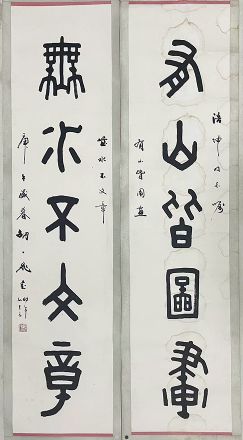 有山皆圖畫
有山皆圖畫
無水不文章
無水不文章
庚午歲暮